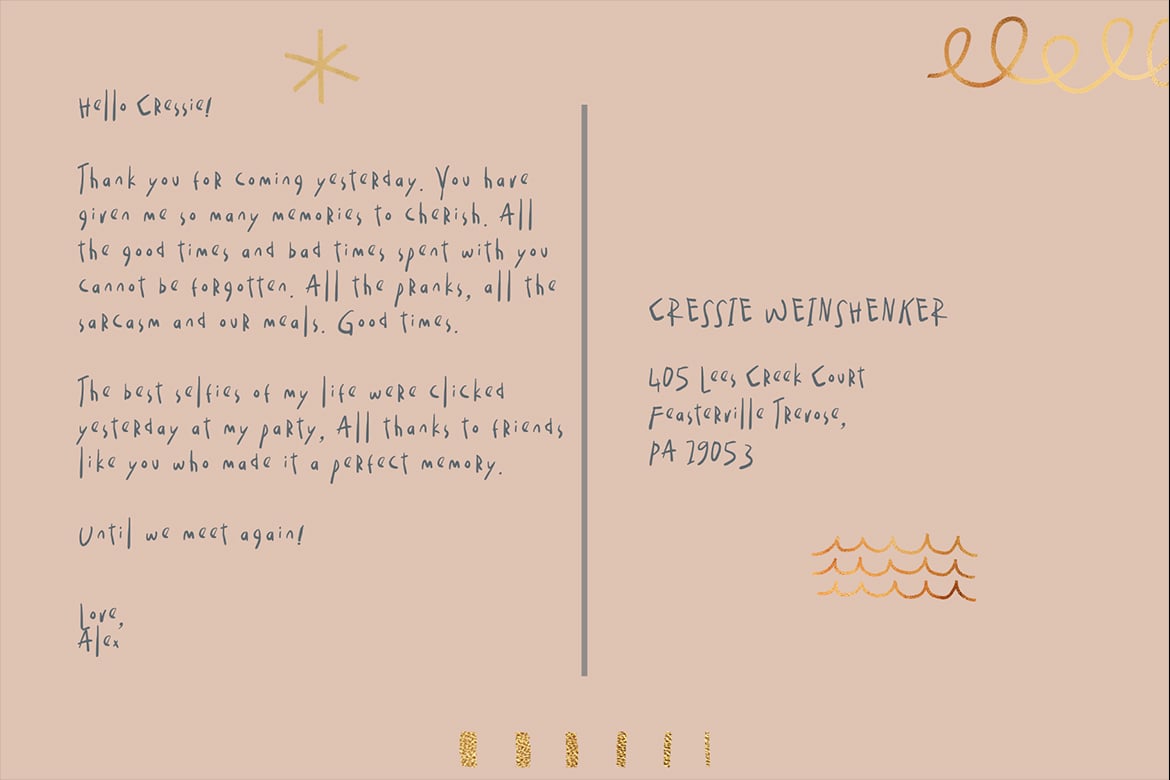 Hello Cressie!
Thank you for coming yesterday. You have
given me so many memories to cherish. All
the good times and bad times spent with you
cannot be forgotten. All the pranks, all the
sarcasm and our meals. Good times.
The best selfies of my life were clicked
yesterday at my party, All thanks to friends
like you who made it a perfect memory.
Until we meet again!
Love,
Alex
CRESSIE WEINSHENKER
405 Lees Creek Court
Feasterville Trevose,
PA 19053